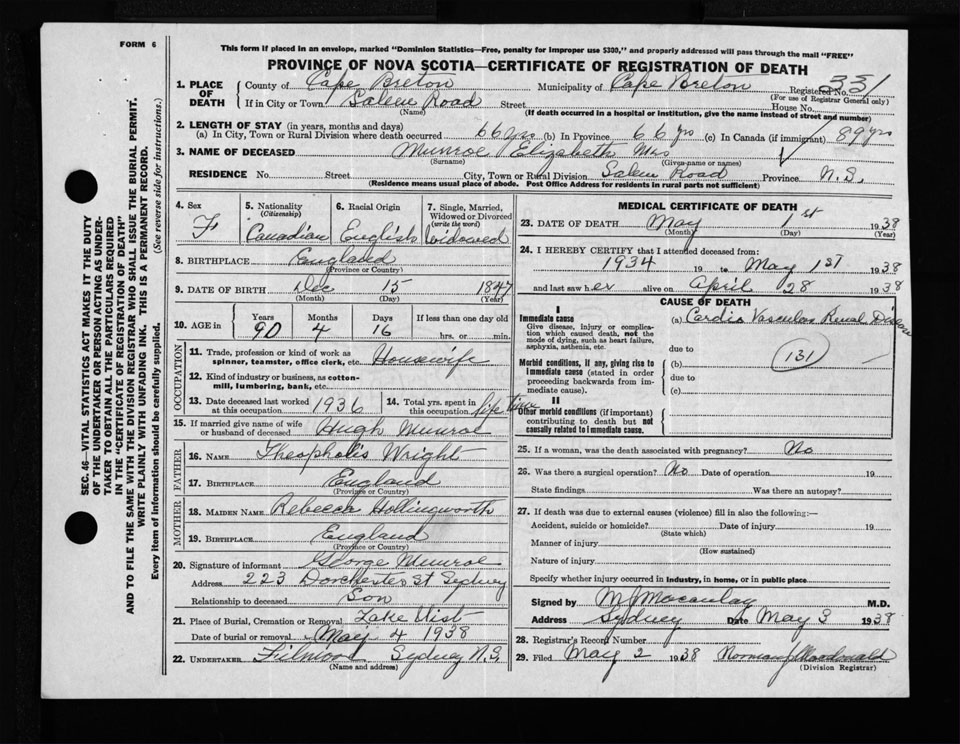 FORM 6
This form if placed in an envelope, marked "Dominion Statistics—Free, penalty for improper use $300," and properly addressed will pass through the mail "FREE"
PROVINCE OF NOVA SCOTIA—CERTIFICATE OF REGISTRATION OF DEATH
1. PLACE OF DEATH County of Cape Breton Municipality of Cape Breton Registered No. 331
(For use of Registrar General only)
If in City or Town Salem Road Street House No.
(Name) (If death occurred in a hospital or institution, give the name instead of street and number)
2. LENGTH OF STAY (in years, months and days)
(a) In City, Town or Rural Division where death occurred 66 yrs (b) In Province 66 yrs (c) In Canada (if immigrant) 89 yrs
3. NAME OF DECEASED Munroe Elizabeth Mrs
(Surname) (Given name or names)
RESIDENCE No. Street City, Town or Rural Division Salem Road Province N.S.
(Residence means usual place of abode. Post Office Address for residents in rural parts not sufficient)
4. Sex F
5. Nationality (Citizenship) Canadian
6. Racial Origin English
7. Single, Married, Widowed or Divorced (write the word) widowed
8. BIRTHPLACE England
(Province or Country)
9. DATE OF BIRTH Dec 15 1847
(Month) (Day) (Year)
10. AGE in Years Months Days If less than one day old
90 4 16 hrs. or min.
OCCUPATION
11. Trade, profession or kind of work as spinner, teamster, office clerk, etc. Housewife
12. Kind of industry or business, as cotton-mill, lumbering, bank, etc.
13. Date deceased last worked at this occupation 1936
14. Total yrs. spent in this occupation life time
15. If married give name of wife or husband of deceased Hugh Munroe
FATHER
16. NAME Theopholis Wright
17. BIRTHPLACE England
(Province or Country)
MOTHER
18. MAIDEN NAME Rebecca Hollingworth
19. BIRTHPLACE England
(Province or Country)
20. Signature of informant George Munroe
Address 223 Dorchester St Sydney
Relationship to deceased Son
21. Place of Burial, Cremation or Removal Lake Uist
Date of burial or removal May 4 1938
22. UNDERTAKER Sydney N.S.
(Name and address)
MEDICAL CERTIFICATE OF DEATH
23. DATE OF DEATH May 1st 1938
(Month) (Day) (Year)
24. I HEREBY CERTIFY that I attended deceased from:
1934 19 to May 1st 1938
and last saw her alive on April 28 1938
CAUSE OF DEATH
I
Immediate cause
Give disease, injury or complication which caused death, not the mode of dying, such as heart failure, asphyxia, asthenia, etc.
(a) Cardio Vascular Renal Disease
due to
Morbid conditions, if any, giving rise to immediate cause (stated in order proceeding backwards from immediate cause).
(b) 131
due to
(c)
II
Other morbid conditions (if important) contributing to death but not causally related to immediate cause.
25. If a woman, was the death associated with pregnancy? No
26. Was there a surgical operation? No Date of operation 19
State findings Was there an autopsy?
27. If death was due to external causes (violence) fill in also the following:—
Accident, suicide or homicide? Date of injury 19
(State which)
Manner of injury
(How sustained)
Nature of injury
Specify whether injury occurred in industry, in home, or in public place
Signed by M J Macaulay M.D.
Address Sydney Date May 3 1938
28. Registrar's Record Number
29. Filed May 2 1938 Norman J Macdonald
(Division Registrar)
SEC. 46—VITAL STATISTICS ACT MAKES IT THE DUTY
OF THE UNDERTAKER OR PERSON ACTING AS UNDER-
TAKER TO OBTAIN ALL THE PARTICULARS REQUIRED
IN THE "CERTIFICATE OF REGISTRATION OF DEATH"
AND TO FILE THE SAME WITH THE DIVISION REGISTRAR WHO SHALL ISSUE THE BURIAL PERMIT.
WRITE PLAINLY WITH UNFADING INK. THIS IS A PERMANENT RECORD.
Every item of information should be carefully supplied. (See reverse side for instructions.)